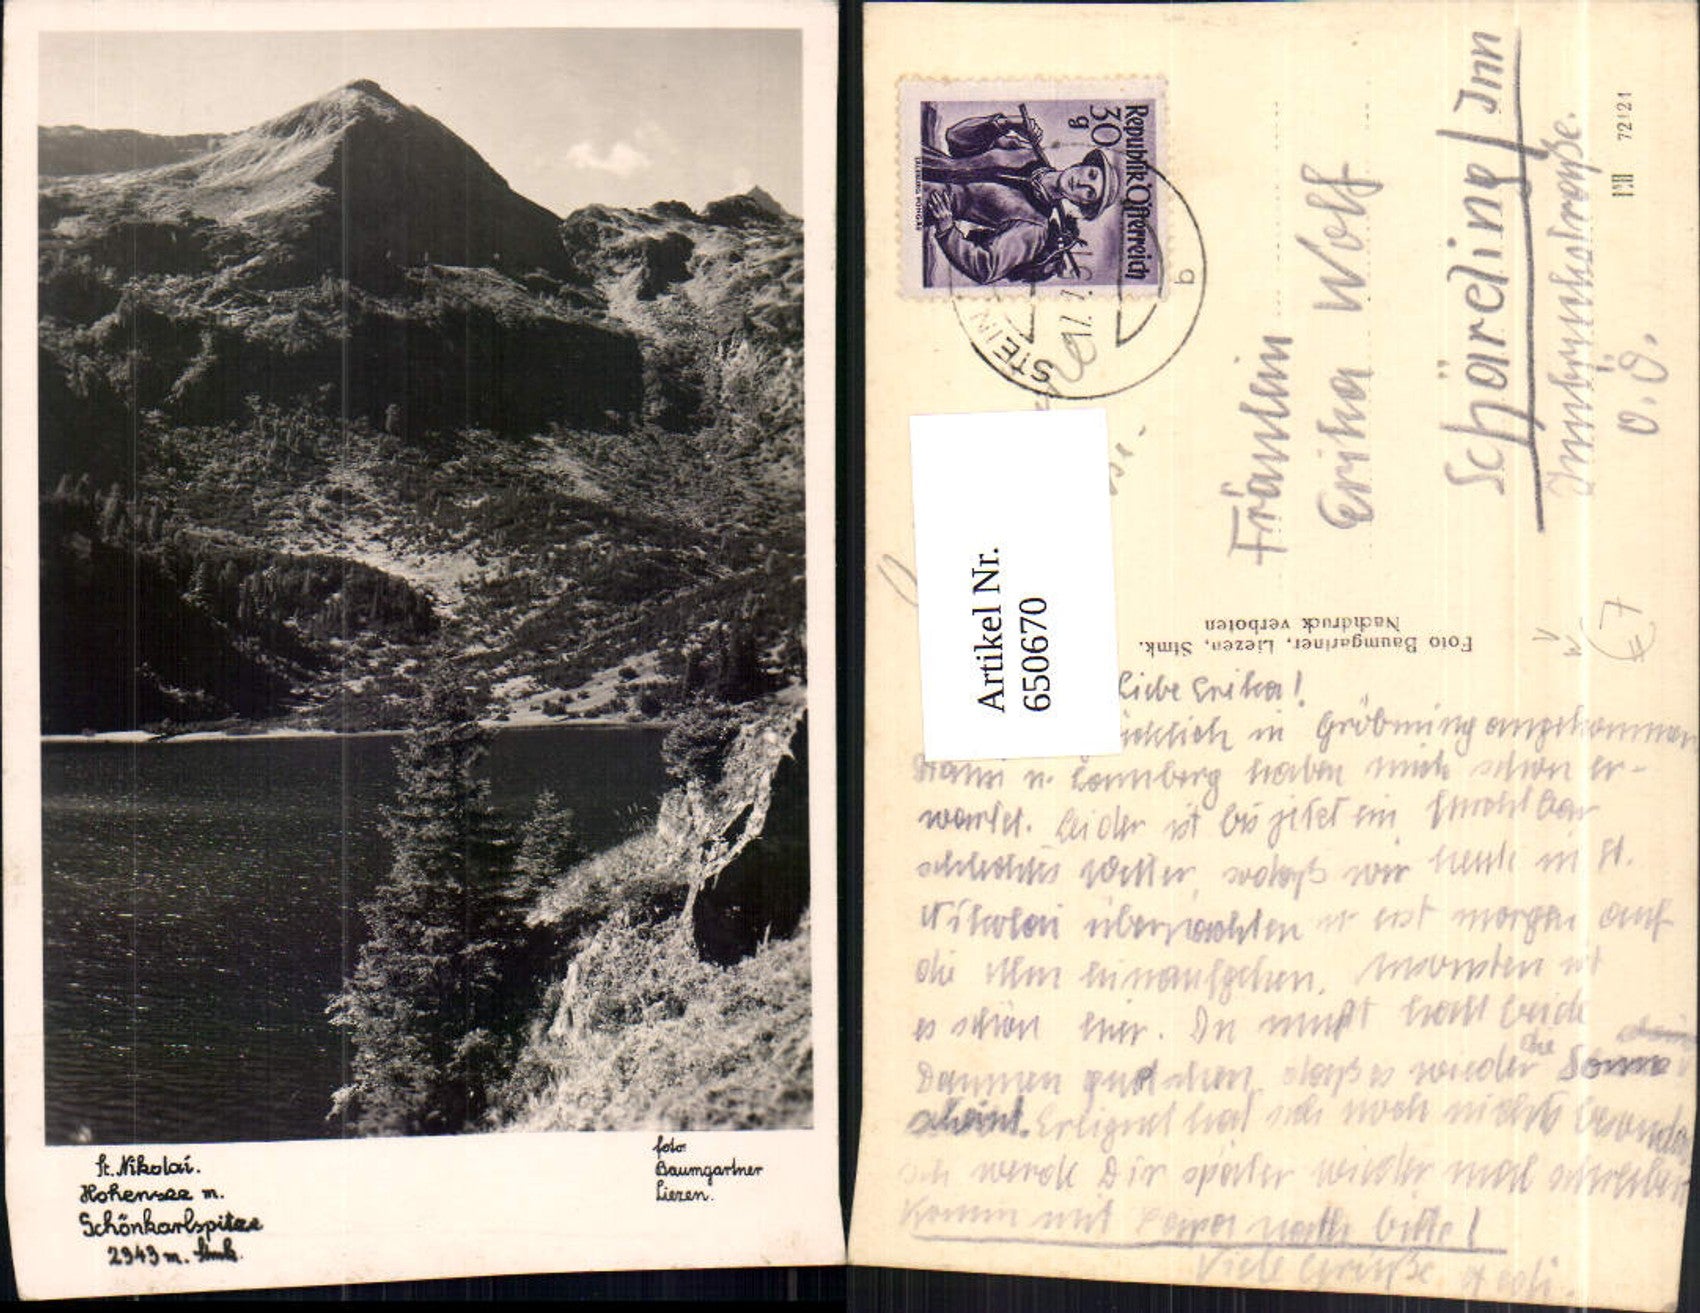 St. Nikolai.
Hohensee m.
Schönkarlspitze
2343 m. Stmk.
foto:
Baumgartner
Liezen.
Republik Österreich
30 g
STEIN
b
Artikel Nr.
6506670
Fräulein
Erika Wolf
Schärding/Inn
O.Ö.
72121
Foto Baumgartner, Liezen, Stmk.
Nachdruck verboten
Liebe Erika!
in Gröbming angekommen
u. haben mich schon er-
wartet. Leider ist bis jetzt ein furchtbar
schlechtes Wetter, sodaß wir heute in St.
Nikolai übernachten u. erst morgen auf
die Alm hinaufgehen. Ansonsten ist
es schön hier. Du mußt halt beide
Daumen halten, daß es wieder die Sonne
scheint. Ereignet hat sich noch nichts
Ich werde Dir später wieder mal schreiben
Komm mit bitte!
Viele Grüße